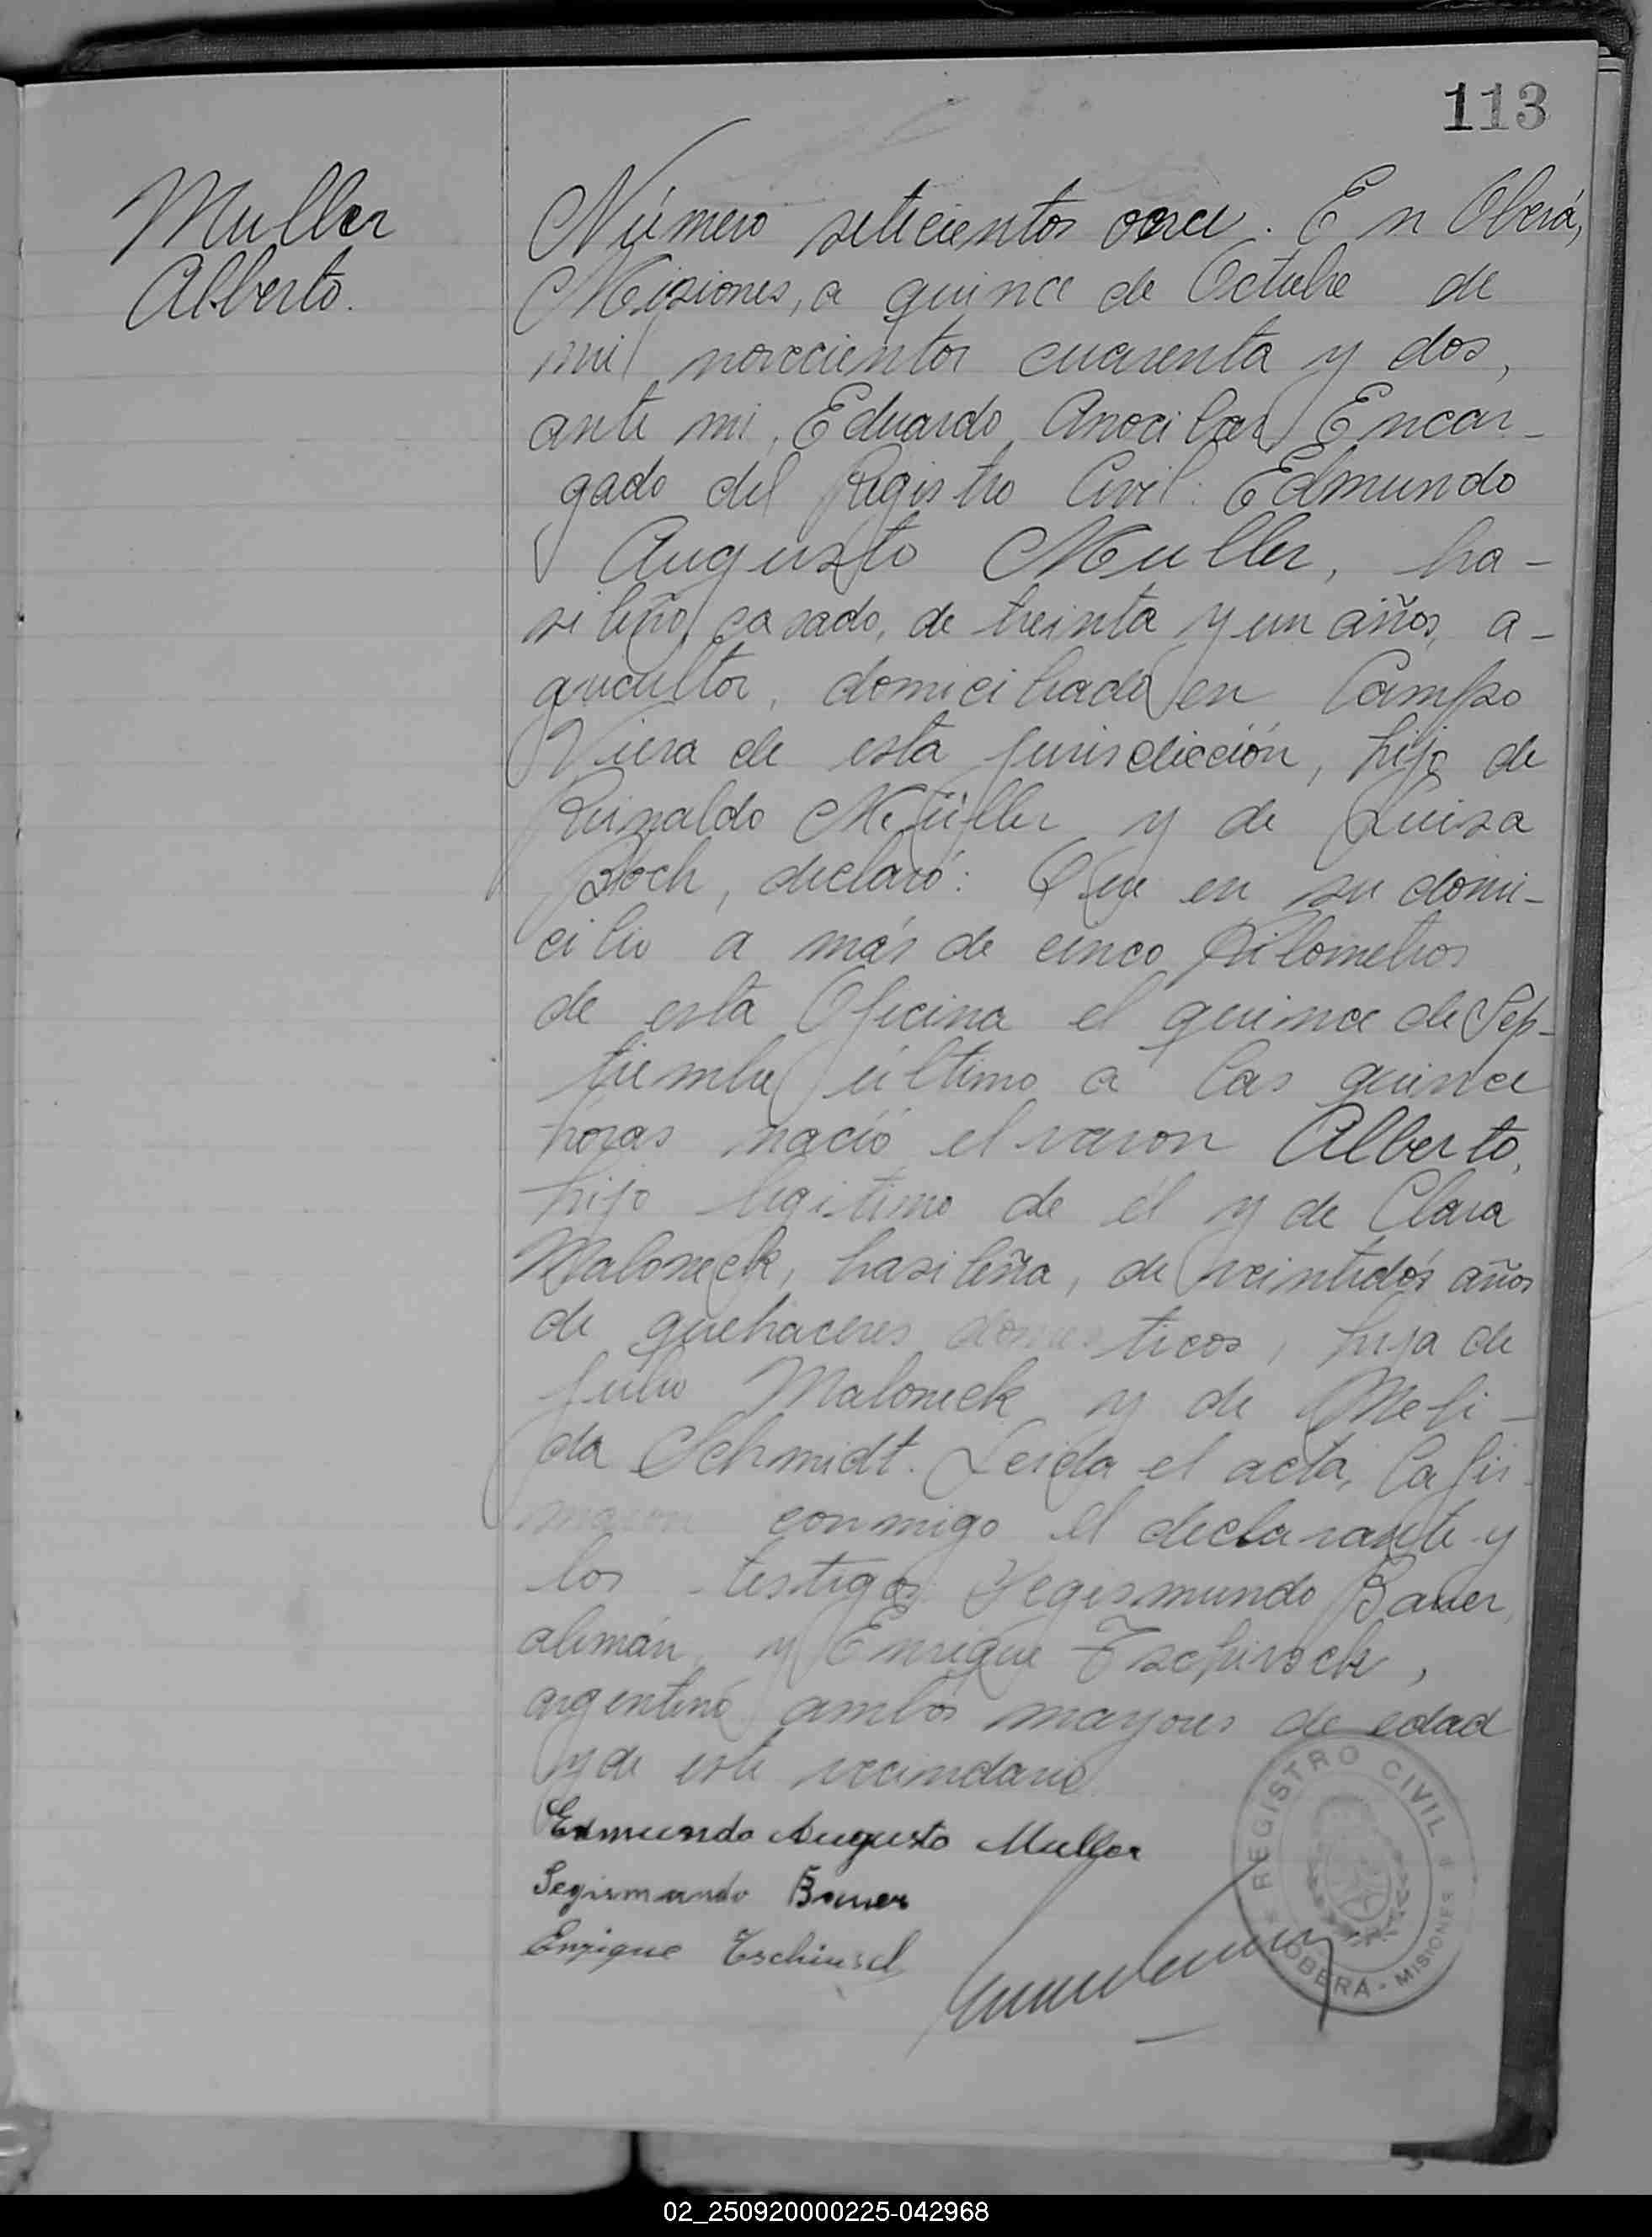 113
Muller
Alberto.
Número seticientos once. En Oberá,
Misiones, a quince de Octubre de
mil novecientos cuarenta y dos,
ante mi, Eduardo Encar-
gado del Registro Civil: Edmundo
Augusto Muller, bra-
sileño, casado, de treinta y un años, a-
gricultor, domiciliado en Campo
Viera de esta jurisdicción, hijo de
Reinaldo Müller y de Luisa
declaró: Que en su domi-
cilio a más de cinco kilometros
de esta Oficina el quince de Sep-
tiembre último a las quince
horas nació el varon Alberto,
hijo legitimo de él y de Clara
Maloneck, brasileña, de veintidós años
de quehaceres domesticos, hija de
Julio Maloneck y de Meli-
da Schmidt. Leida el acta, la fir-
maron conmigo el declarante y
los testigos Segismundo Bauer,
alemán, y Enrique Tschirsch,
argentino ambos mayores de edad
y de este vecindario
Edmundo Augusto Muller
Segismundo Bauer
Enrique
REGISTRO CIVIL
OBERA - MISIONES
02_250920000225-042968